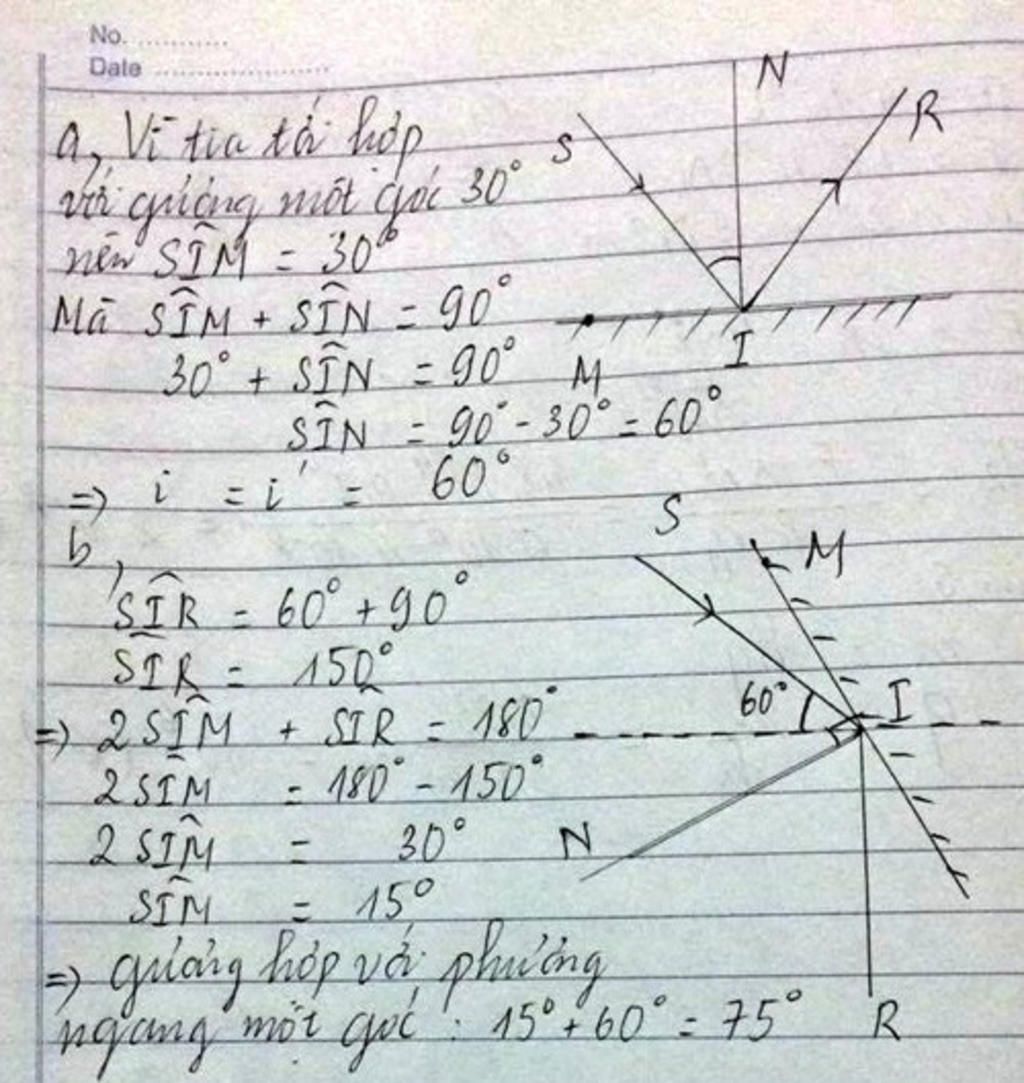 No. ............
Date ........................
a, Vì tia tới hợp
với gương một góc 30°
nên SÎM = 30°
Mà SÎM + SÎN = 90°
30° + SÎN = 90°
SÎN = 90° - 30° = 60°
=> i = i' = 60°
N
S
R
M
I
b,
SÎR = 60° + 90°
SÎR = 150°
=> 2SÎM + SÎR = 180°
2SÎM = 180° - 150°
2SÎM = 30°
SÎM = 15°
=> gương hợp với phương
ngang một góc : 15° + 60° = 75°
S
M
60°
I
N
R